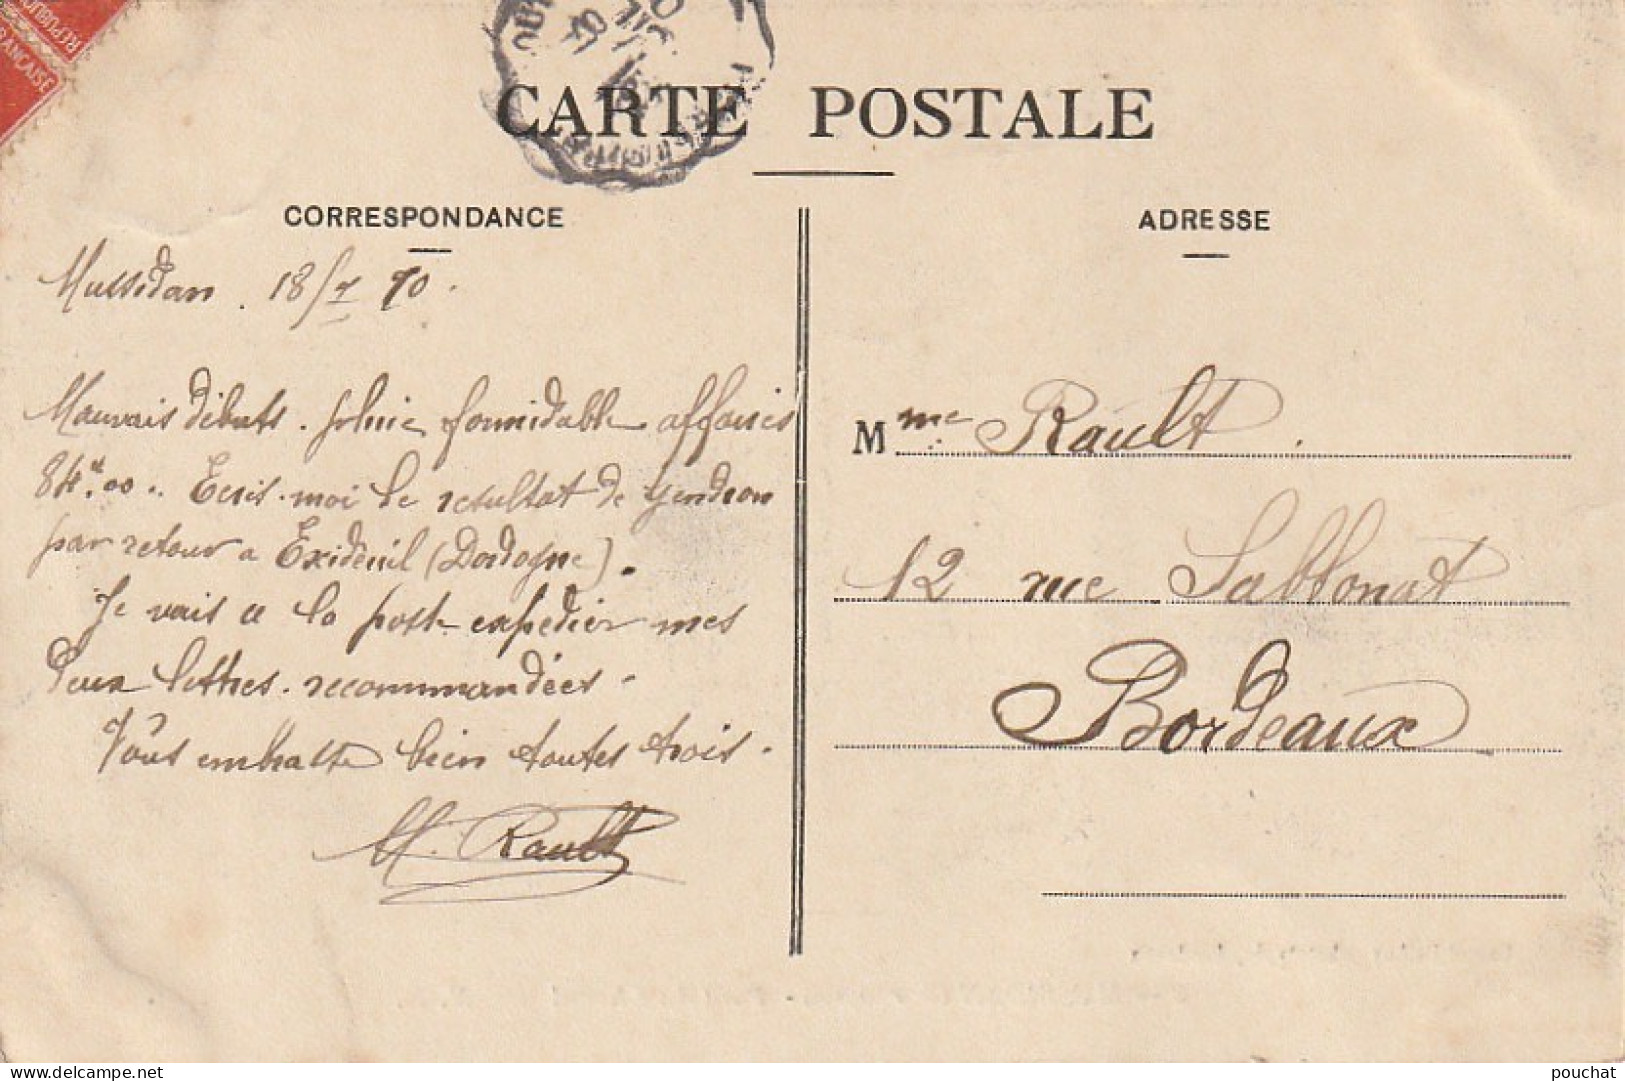 RÉPUBLIQUE
FRANÇAISE
CARTE POSTALE
CORRESPONDANCE
ADRESSE
Mussidan. 18/7 10.
Mauvais débuts. pluie formidable affaires
84.00.. Ecris-moi le resultat de Gendron
par retour a Exideuil (Dordogne).
Je vais a la poste expédier mes
deux lettres recommandées.
Vous embrasse bien toutes trois.
M. Rault
Mme Rault.
12 rue Sablonat
Bordeaux
delcampe.net
pouchat